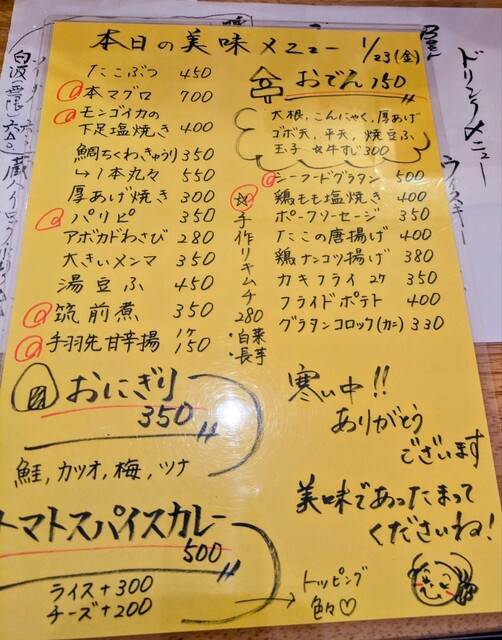 本日の美味メニュー 1/23(金)
たこぶつ 450
本マグロ 700
モンゴイカの
下足塩焼き 400
鯛ちくわきゅうり 350
→1本丸々 550
厚あげ焼き 300
パリピ 350
アボカドわさび 280
大きいメンマ 350
湯豆ふ 450
筑前煮 350
手羽先甘辛揚 1ケ 150
おでん 150
大根,こんにゃく,厚あげ
ゴボ天,平天,焼豆ふ
玉子 ☆牛すじ300
☆手作りキムチ 280
・白菜
・長芋
シーフードグラタン 500
鶏もも塩焼き 400
ポークソーセージ 350
たこの唐揚げ 400
鶏ナンコツ揚げ 380
カキフライ 2ケ 350
フライドポテト 400
グラタンコロッケ(カニ) 330
おにぎり
350
鮭,カツオ,梅,ツナ
トマトスパイスカレー
500
ライス+300
チーズ+200
トッピング
色々♡
寒い中!!
ありがとう
ございます
美味であったまって
くださいね!
ドリンクメニュー